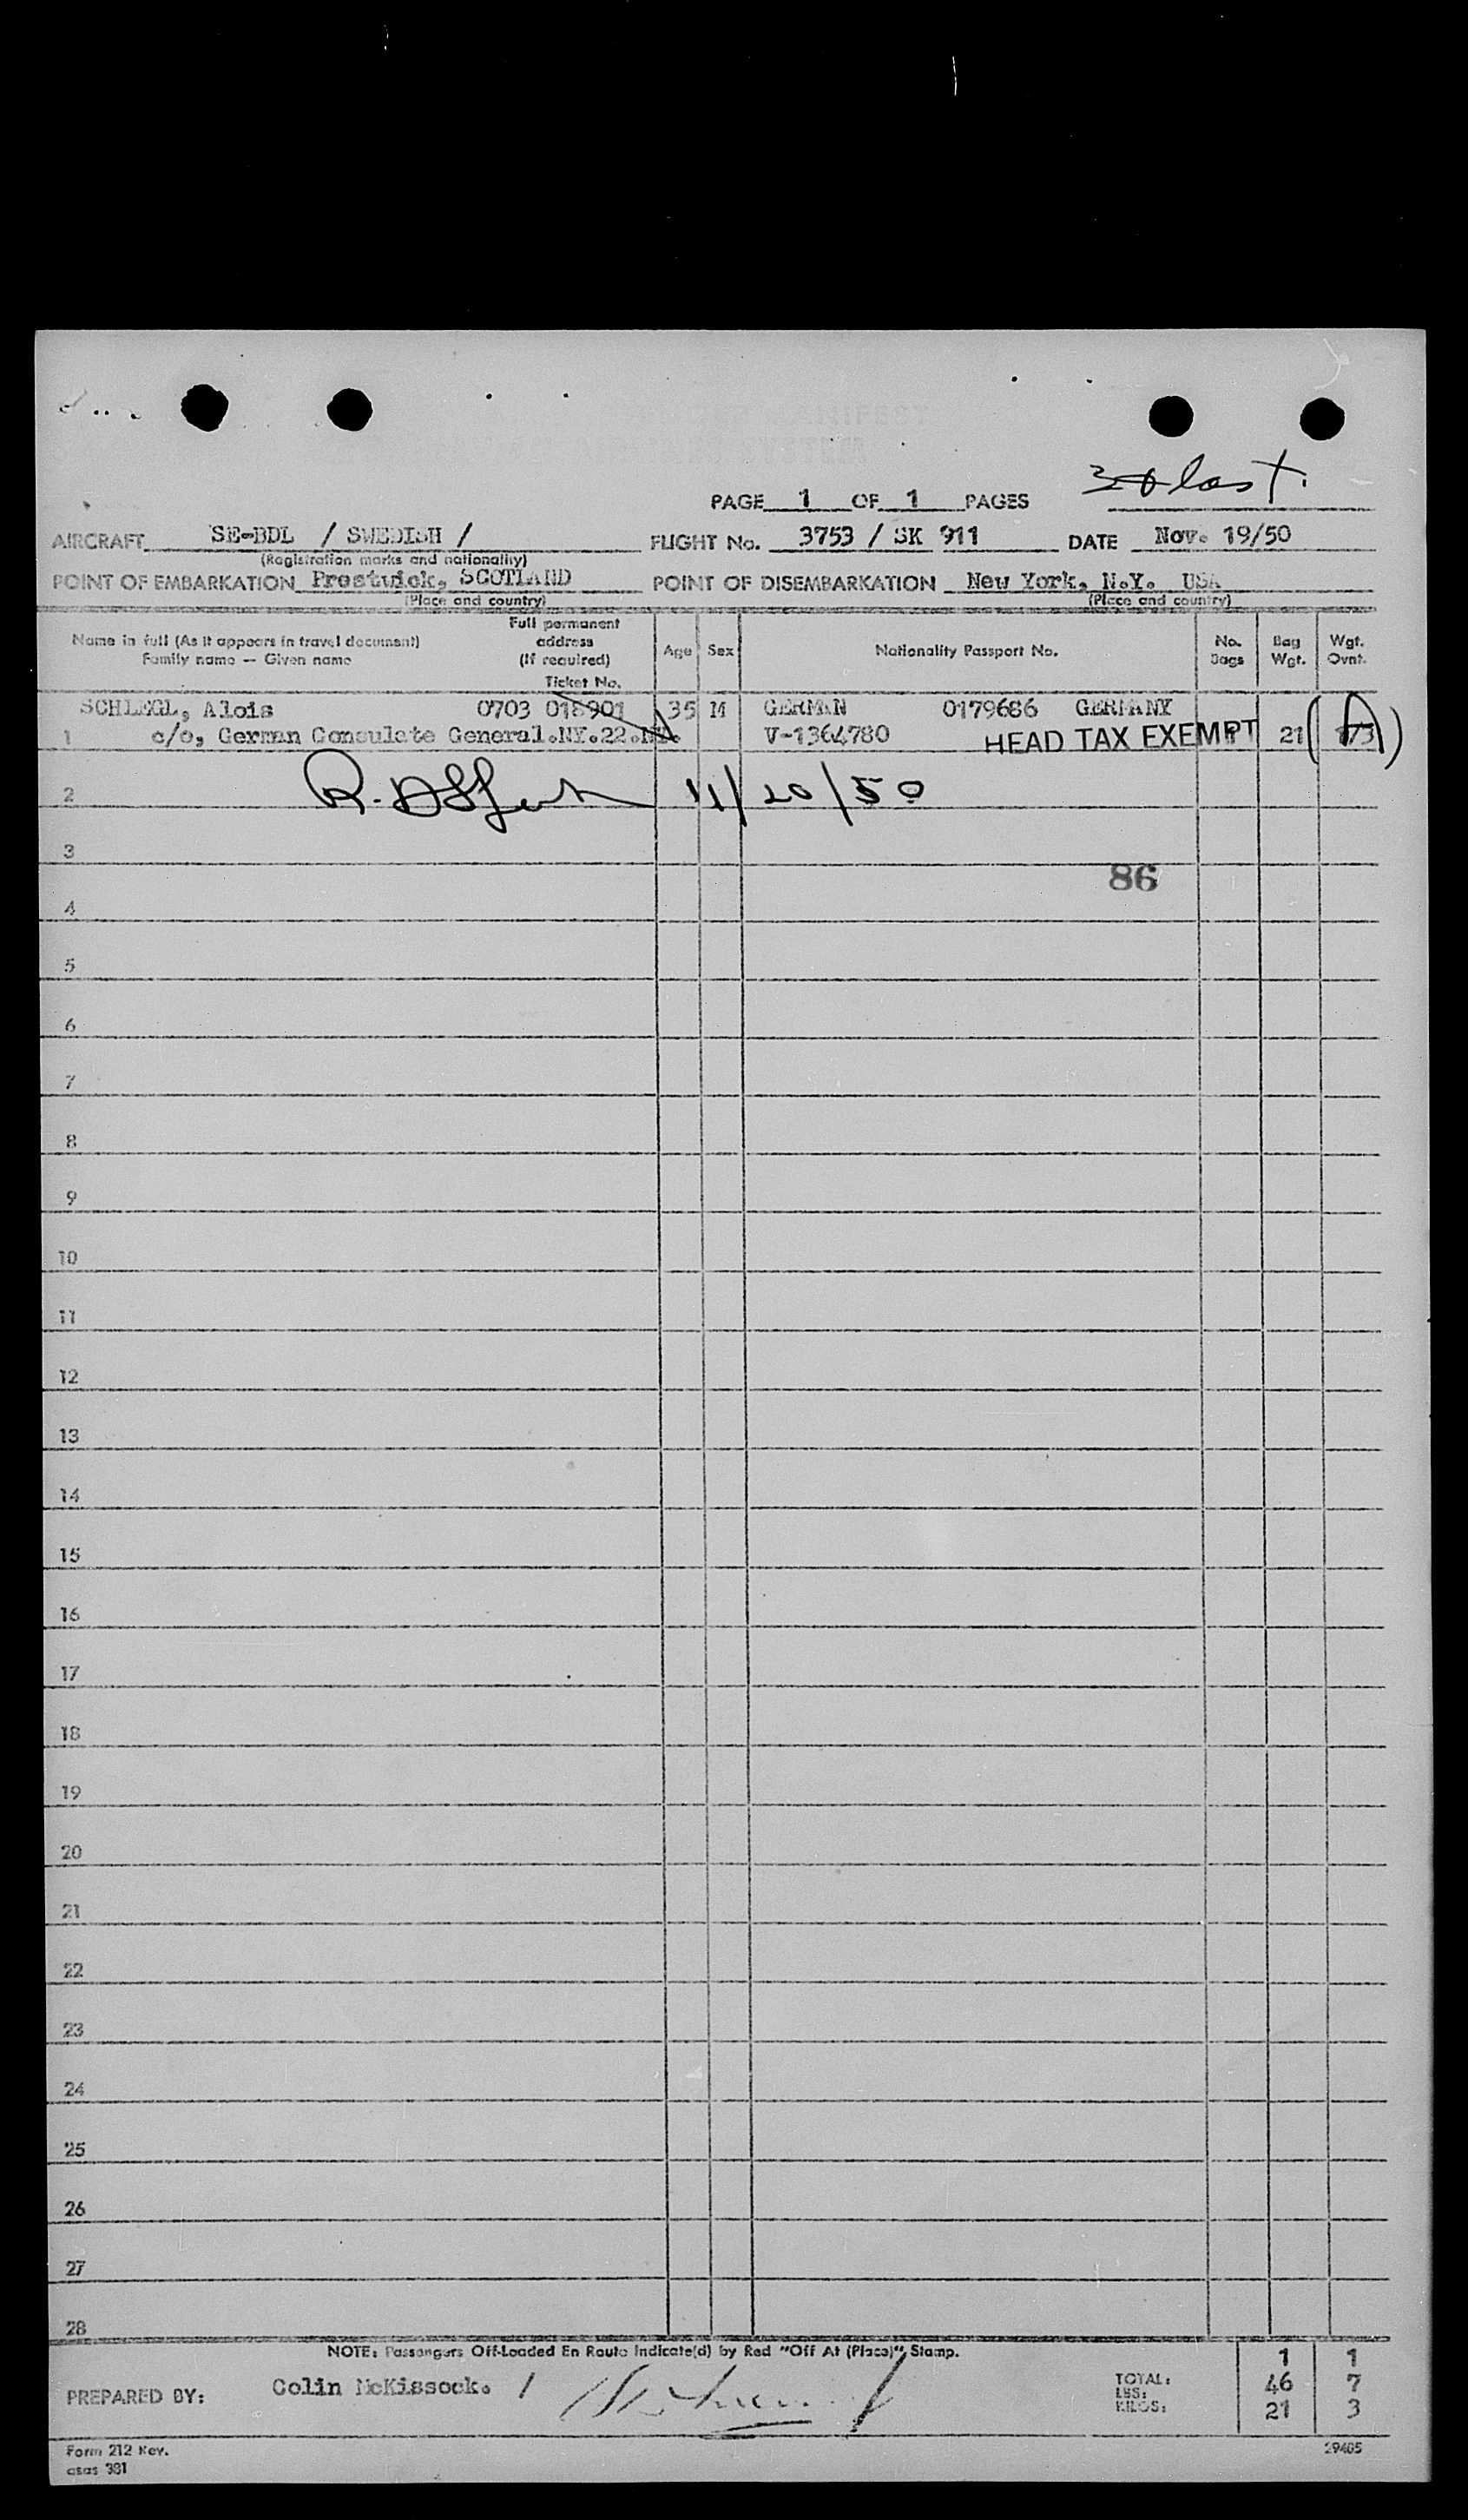 PAGE 1 OF 1 PAGES
AIRCRAFT SE-BDL / SWEDISH / FLIGHT No. 3753 / SK 911 DATE Nov. 19/50
(Registration marks and nationality)
POINT OF EMBARKATION Prestwick, SCOTLAND POINT OF DISEMBARKATION New York, N.Y. USA
(Place and country) (Place and country)
Name in full (As it appears in travel document)
Family name — Given name
Full permanent
address
(If required)
Ticket No.
Age Sex Nationality Passport No. No.
Bags Bag
Wgt. Wgt.
Ovnt.
SCHLEGL, Alois 0703 018901 35 M GERMAN 0179686 GERMANY
1 c/o, German Consulate General.NY.22.NY. V-1364780 HEAD TAX EXEMPT 21 (A)
2 11/20/50
3
86
4
5
6
7
8
9
10
11
12
13
14
15
16
17
18
19
20
21
22
23
24
25
26
27
28
NOTE: Passengers Off-Loaded En Route Indicate(d) by Red "Off At (Place)" Stamp.
1 1
PREPARED BY: Colin McKissock. / TOTAL:
LBS: 46 7
KILOS: 21 3
Form 212 Rev. 29405
asas 381